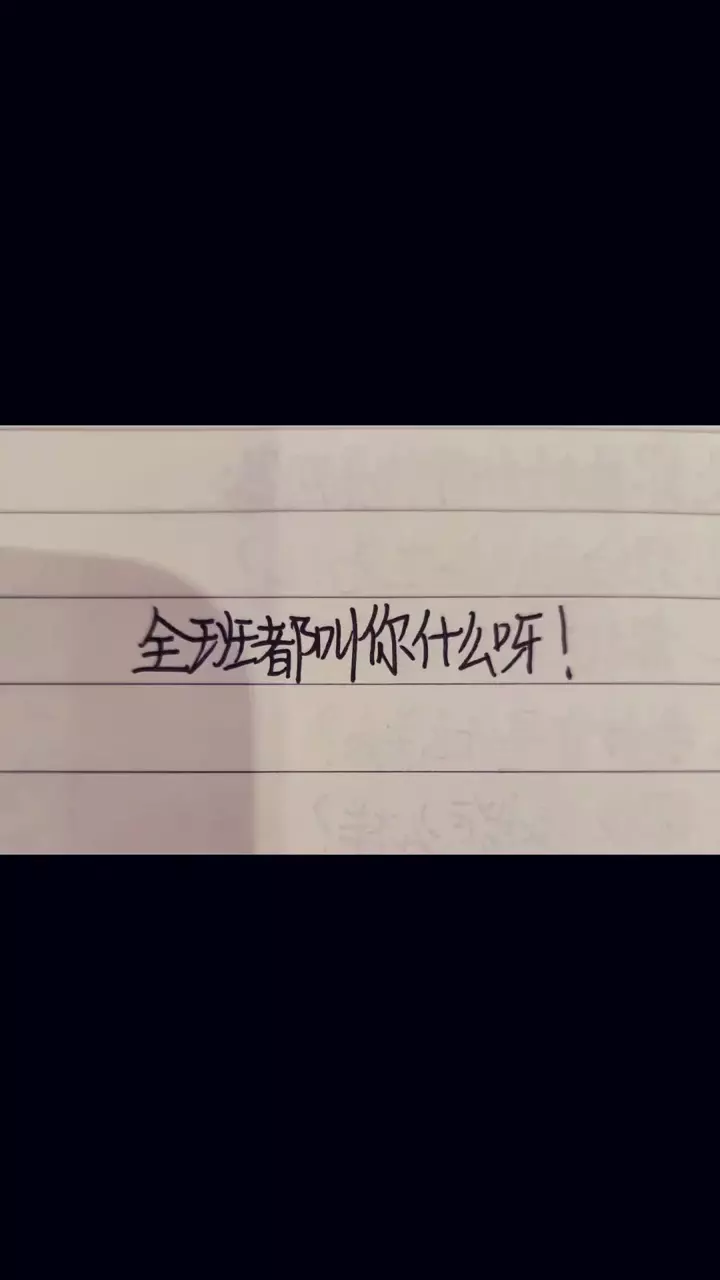 全班都叫你什么呀！